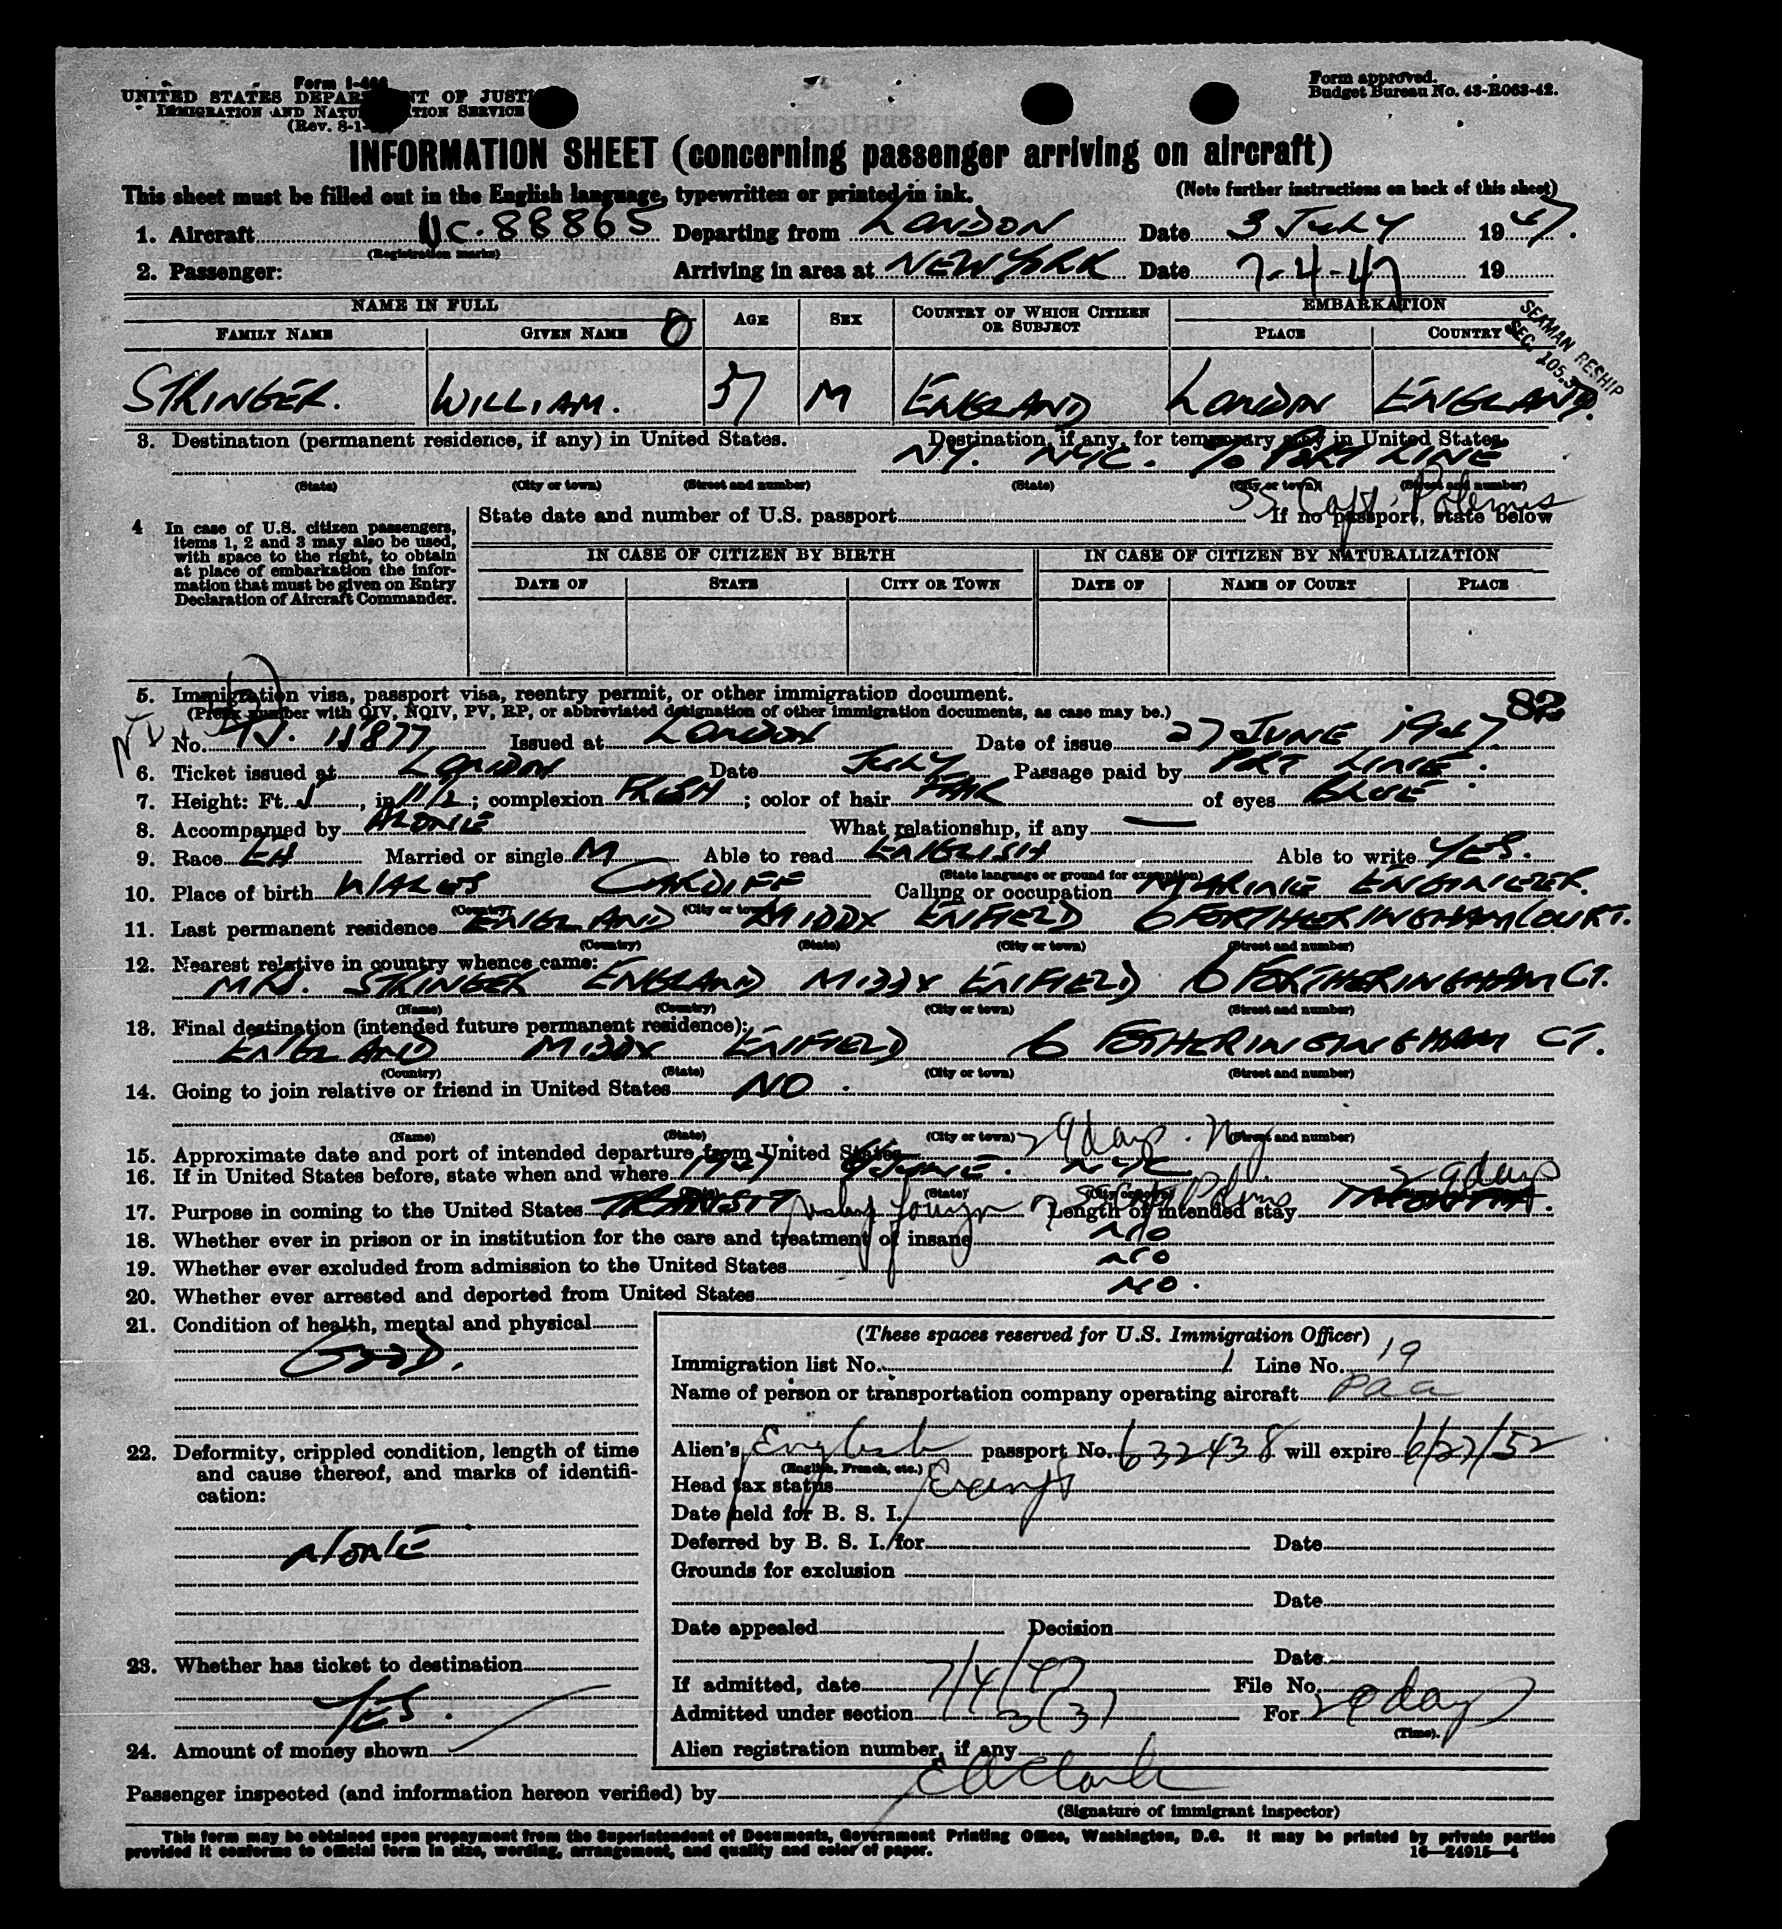 Form I-466
UNITED STATES DEPARTMENT OF JUSTICE
IMMIGRATION AND NATURALIZATION SERVICE
(Rev. 8-1-
Form approved.
Budget Bureau No. 43-R063-42.
INFORMATION SHEET (concerning passenger arriving on aircraft)
This sheet must be filled out in the English language, typewritten or printed in ink.
(Note further instructions on back of this sheet)
1. Aircraft NC.88865 Departing from LONDON Date 3 JULY 1947.
(Registration marks)
2. Passenger: Arriving in area at NEW YORK Date 7-4-47 19
NAME IN FULL AGE SEX COUNTRY OF WHICH CITIZEN OR SUBJECT EMBARKATION
FAMILY NAME GIVEN NAME PLACE COUNTRY
SEAMAN RESHIP
SEC. 105.3
STRINGER. WILLIAM. 37 M ENGLAND LONDON ENGLAND.
3. Destination (permanent residence, if any) in United States. Destination, if any, for temporary stay in United States.
NY. NYC. % PORT LINE
(State) (City or town) (Street and number) (State) (City or town) (Street and number)
SS. Capt. Polemis
4 In case of U.S. citizen passengers, items 1, 2 and 3 may also be used, with space to the right, to obtain at place of embarkation the information that must be given on Entry Declaration of Aircraft Commander.
State date and number of U.S. passport If no passport, state below
IN CASE OF CITIZEN BY BIRTH IN CASE OF CITIZEN BY NATURALIZATION
DATE OF STATE CITY OR TOWN DATE OF NAME OF COURT PLACE
5. Immigration visa, passport visa, reentry permit, or other immigration document.
82
(Prefix number with QIV, NQIV, PV, RP, or abbreviated designation of other immigration documents, as case may be.)
No. 11877 Issued at LONDON Date of issue 27 JUNE 1947
6. Ticket issued at LONDON Date JULY Passage paid by PORT LINE.
7. Height: Ft. 5, in 11/2; complexion FRESH; color of hair FAIR of eyes BLUE
8. Accompanied by ALONE What relationship, if any —
9. Race EH Married or single M Able to read ENGLISH Able to write YES.
(State language or ground for exemption)
10. Place of birth WALES CARDIFF Calling or occupation MARINE ENGINEER.
(Country) (City or town)
11. Last permanent residence ENGLAND MIDDX ENFIELD 6 FORTHERINGHAM COURT.
(Country) (State) (City or town) (Street and number)
12. Nearest relative in country whence came:
MRS. STRINGER ENGLAND MIDDX ENFIELD 6 FORTHERINGHAM CT.
(Name) (Country) (City or town) (Street and number)
13. Final destination (intended future permanent residence):
ENGLAND MIDDX ENFIELD 6 FOTHERINGINGHAM CT.
(Country) (State) (City or town) (Street and number)
14. Going to join relative or friend in United States NO.
(Name) (State) (City or town) (Street and number)
15. Approximate date and port of intended departure from United States 29 days. Ny
16. If in United States before, state when and where 1947 JUNE. NYC
(State) (City or town)
17. Purpose in coming to the United States TRANSIT reship foreign Length of intended stay 29 days
18. Whether ever in prison or in institution for the care and treatment of insane NO
19. Whether ever excluded from admission to the United States NO
20. Whether ever arrested and deported from United States NO.
21. Condition of health, mental and physical
GOOD.
22. Deformity, crippled condition, length of time and cause thereof, and marks of identification:
NONE
23. Whether has ticket to destination
YES.
24. Amount of money shown
(These spaces reserved for U.S. Immigration Officer)
Immigration list No. 1 Line No. 19
Name of person or transportation company operating aircraft PAA
Alien's English passport No. 632438 will expire 6/27/52
(English, French, etc.)
Head tax status Exempt
Date held for B. S. I.
Deferred by B. S. I. for Date
Grounds for exclusion
Date
Date appealed Decision
Date
If admitted, date 7/4/47 File No.
Admitted under section 3(3) For 29 days
(Time).
Alien registration number, if any
Passenger inspected (and information hereon verified) by E A Clark
(Signature of immigrant inspector)
This form may be obtained upon prepayment from the Superintendent of Documents, Government Printing Office, Washington, D.C. It may be printed by private parties
provided it conforms to official form in size, wording, arrangement, and quality and color of paper. 16—24915-1